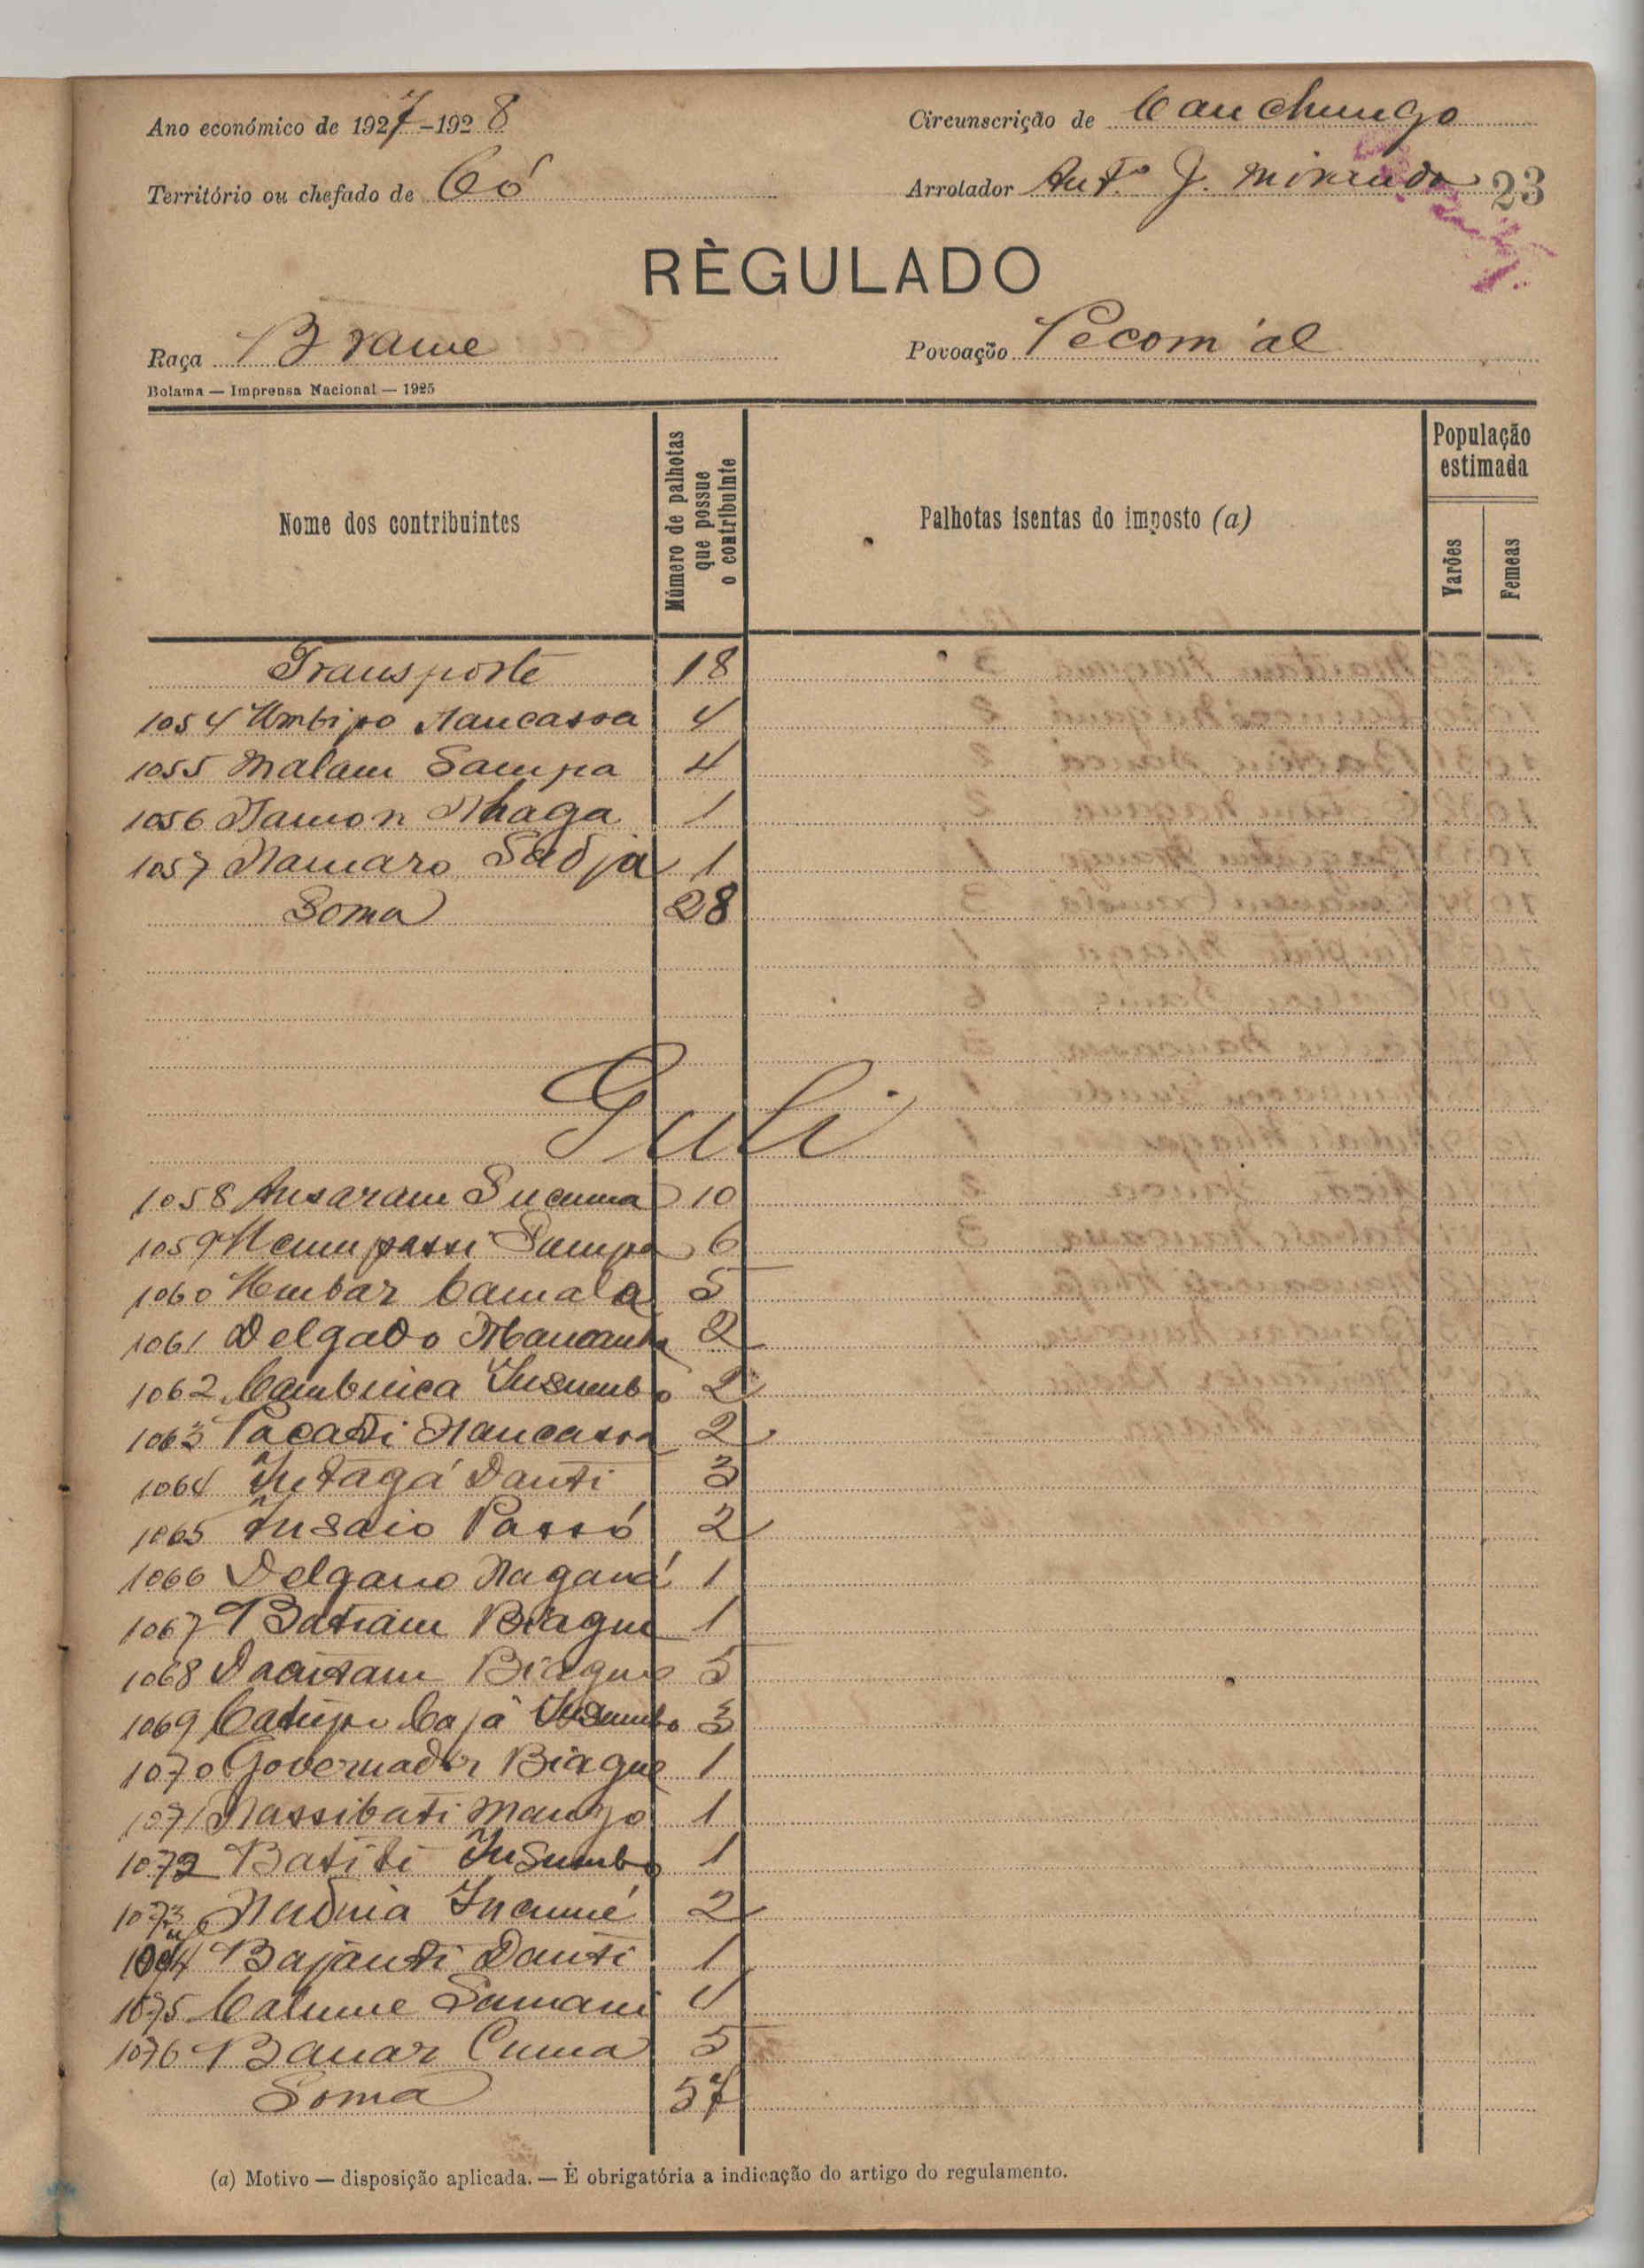 Ano económico de 1927-1928
Circunscrição de Canchungo
Território ou chefado de Có
Arrolador Antº J. Miranda 23
RÈGULADO
Raça Brame
Povoação Pecom'al
Bolama — Imprensa Nacional — 1925
Nome dos contribuintes
Número de palhotas que possue o contribuinte
Palhotas isentas do imposto (a)
População estimada
Varões
Femeas
Transporte 18
1054 Umbipo Nancassa 4
1055 Malam Sampa 4
1056 Namon Nhaga 1
1057 Namaro Sadja 1
Soma 28
Guli
1058 Ansaram Sucuma 10
1059 Sampa 6
1060 Umbar Camala 5
1061 Delgado 2
1062 Insumbo 2
1063 Pacati Nancassa 2
1064 Intagá Danti 3
1065 Insaio Passó 2
1066 Delgano Naganá 1
1067 Batiam Biague 1
1068 Biague 5
1069 Cajá Insumbo 3
1070 Governador Biague 1
1071 Nassibati Mango 1
1072 Batiti Insumbo 1
1073 Incumé 2
1074 Bajanti Danti 1
1075 Calume Samani 4
1076 Banar Cuma 5
Soma 57
(a) Motivo — disposição aplicada. — È obrigatória a indicação do artigo do regulamento.